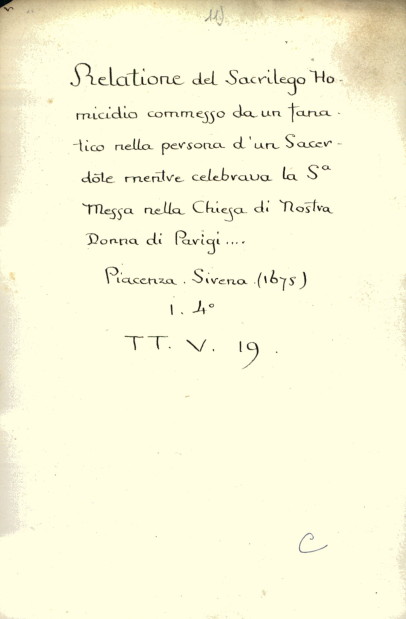 Relatione del Sacrilego Ho-
micidio commesso da un fana-
tico nella persona d'un Sacer-
dote mentre celebrava la Sª
Messa nella Chiesa di Nostra
Donna di Parigi....
Piacenza. Sivena (1675)
1. 4°
TT. V. 19.
C